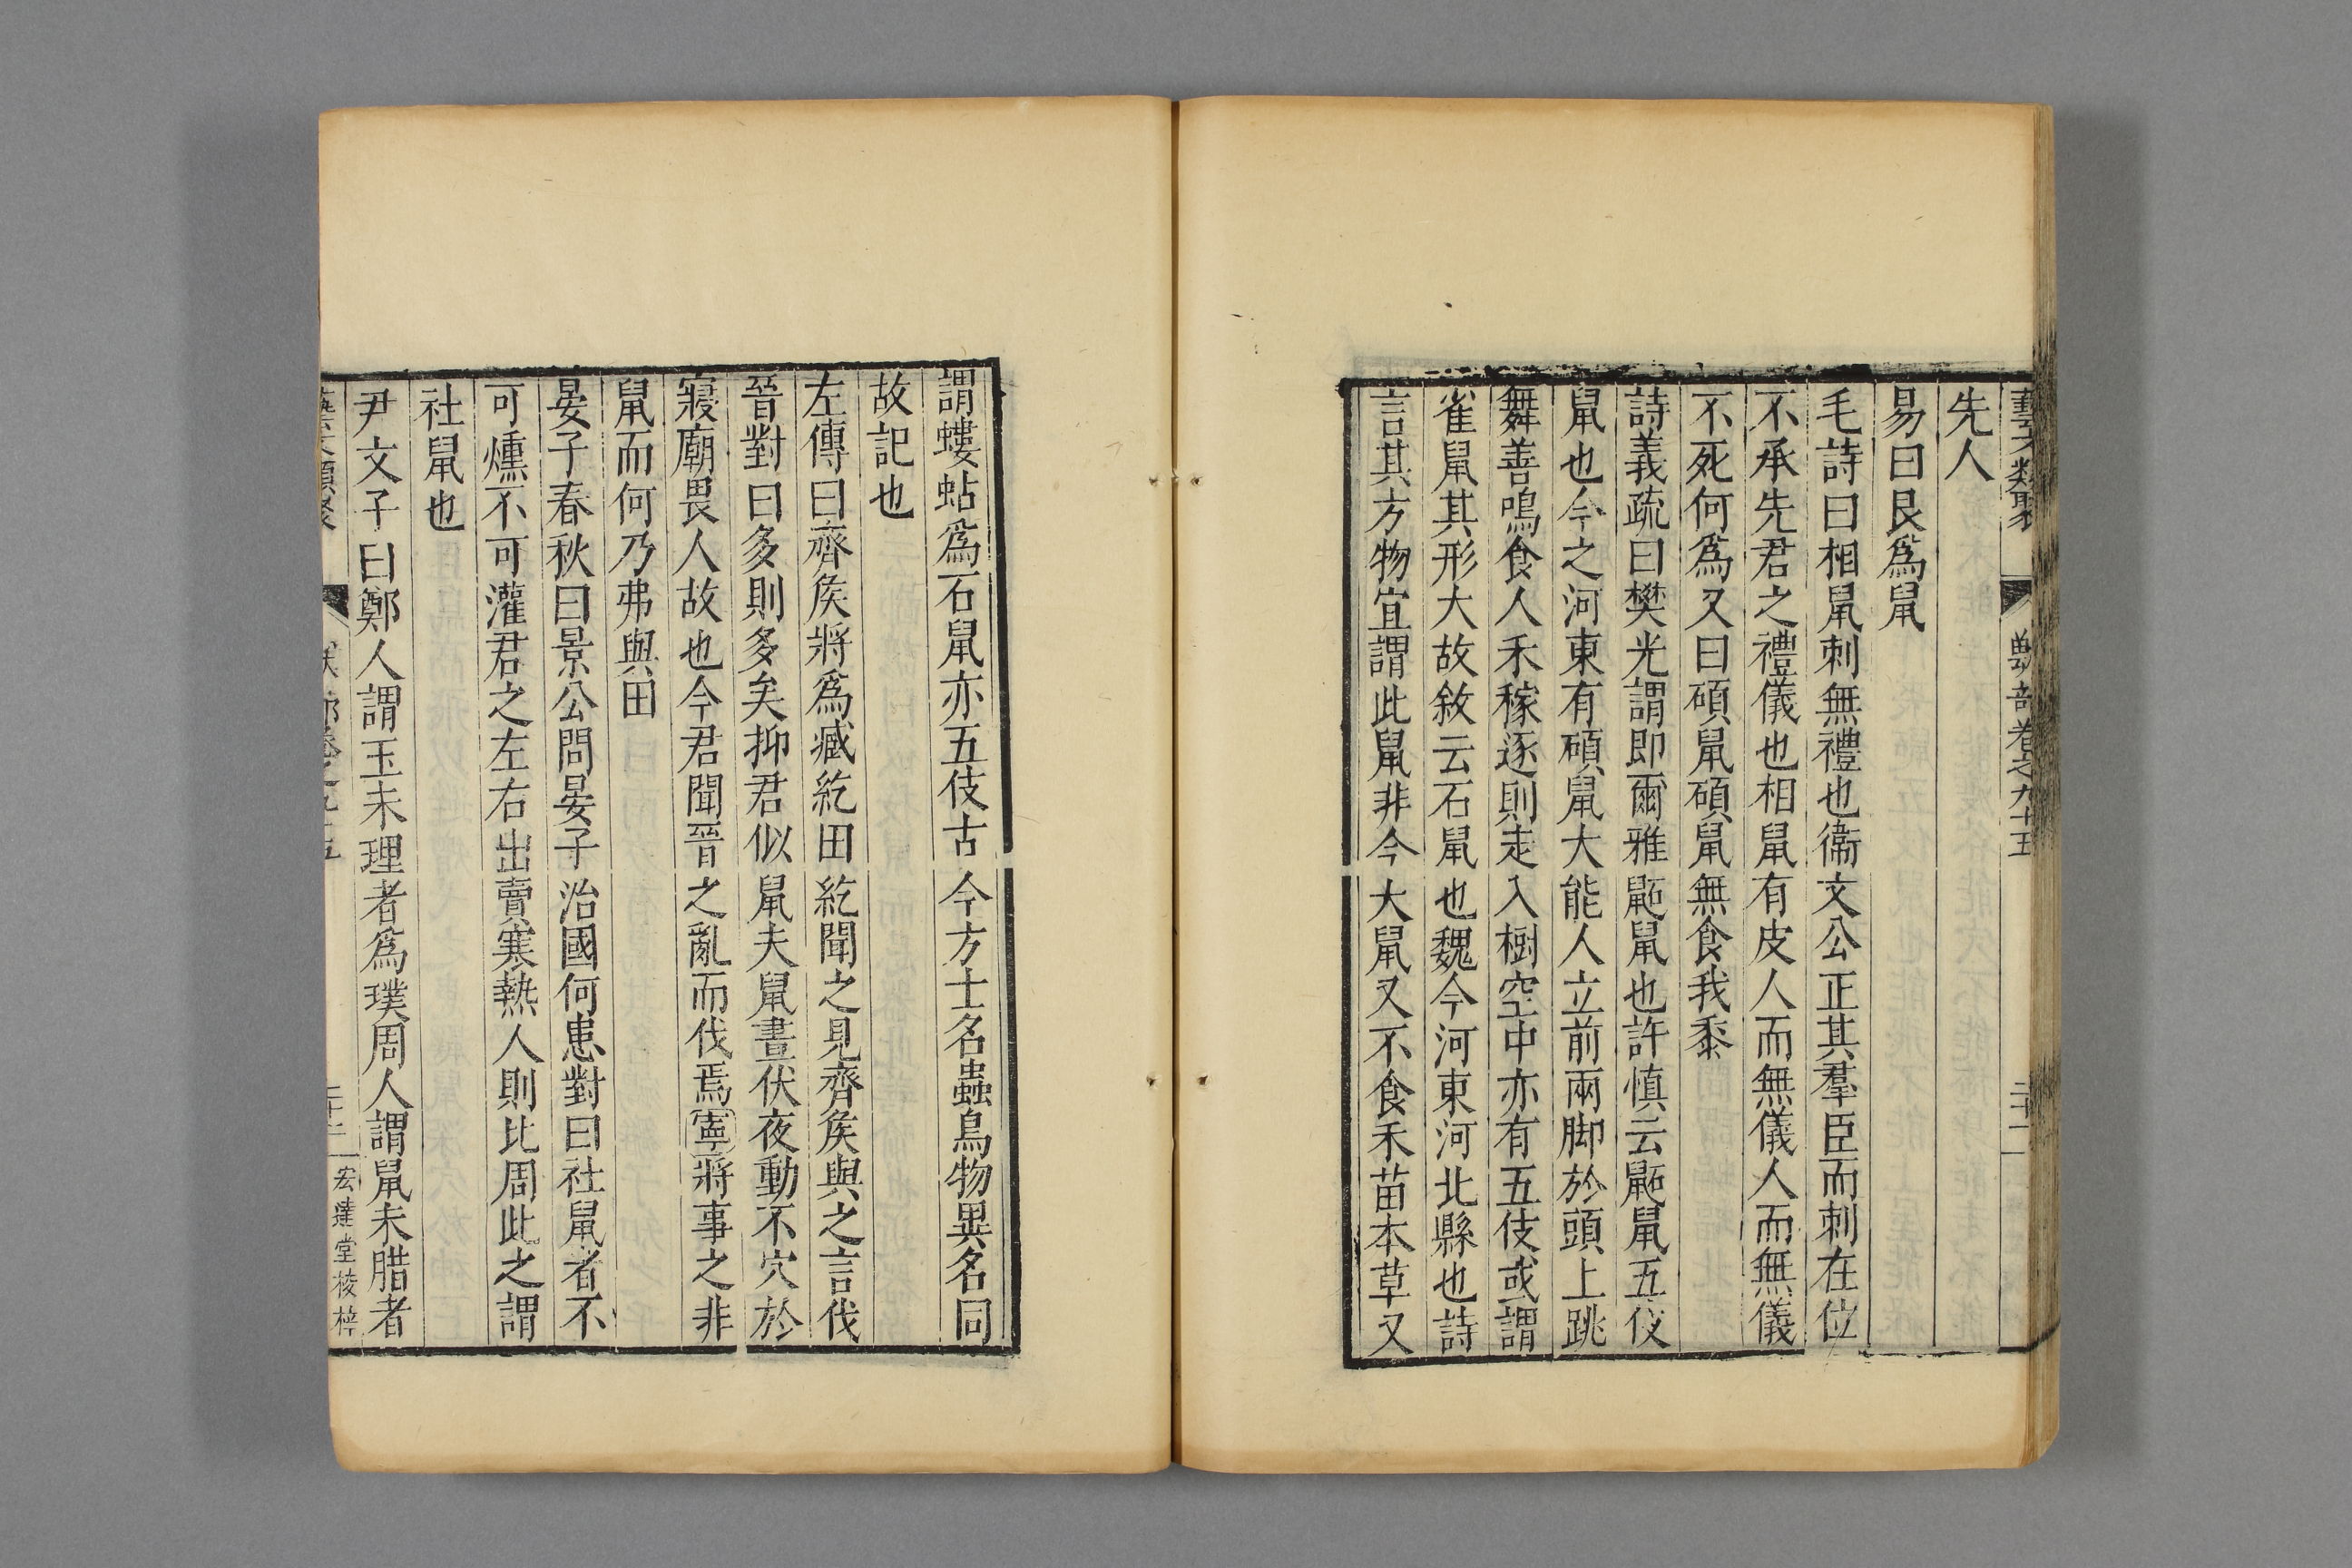 藝文類聚 獸部卷之九十五 二十二
先人
易曰艮爲鼠
毛詩曰相鼠刺無禮也衞文公正其羣臣而刺在位
不承先君之禮儀也相鼠有皮人而無儀人而無儀
不死何爲又曰碩鼠碩鼠無食我黍
詩義疏曰樊光謂即爾雅鼫鼠也許慎云鼫鼠五伎
鼠也今之河東有碩鼠大能人立前兩脚於頭上跳
舞善鳴食人禾稼逐則走入樹空中亦有五伎或謂
雀鼠其形大故敘云石鼠也魏今河東河北縣也詩
言其方物宜謂此鼠非今大鼠又不食禾苗本草又
謂螻蛄爲石鼠亦五伎古今方士名蟲鳥物異名同
故記也
左傳曰齊矦將爲臧紇田紇聞之見齊矦與之言伐
晉對曰多則多矣抑君似鼠夫鼠晝伏夜動不穴於
寢廟畏人故也今君聞晉之亂而伐焉寧將事之非
鼠而何乃弗與田
晏子春秋曰景公問晏子治國何患對曰社鼠者不
可燻不可灌君之左右出賣寒熱人則比周此之謂
社鼠也
尹文子曰鄭人謂玉未理者爲璞周人謂鼠未腊者
藝文類聚 卷之九十五 二十二 宏達堂校梓